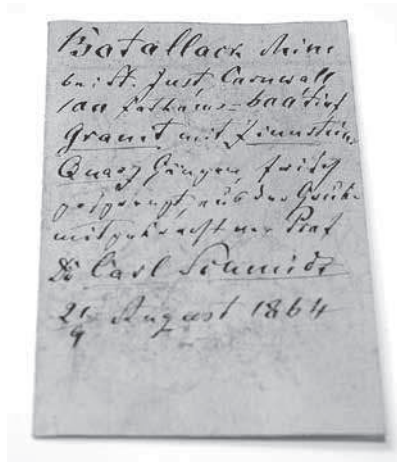 Botallack Mine
bei St. Just Cornwall
100 Fathoms = 600' tief
Granit mit Zinnstein
Quarz Gängen, frisch
gesprengt, aus der Grube
mitgebracht von Prof
Dr Carl Schmidt
21/9 August 1864